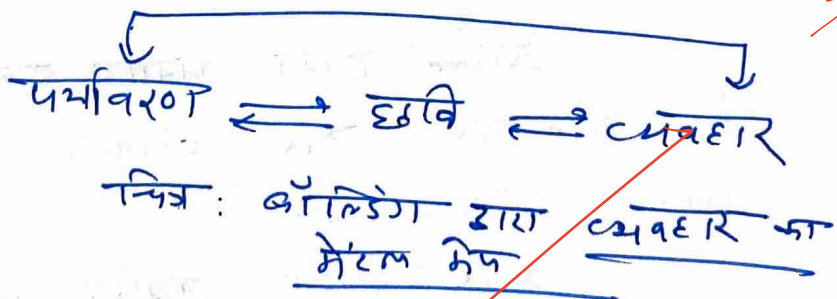 पर्यावरण ⇌ छवि ⇌ व्यवहार
चित्र : बॉल्डिंग द्वारा व्यवहार का
मेंटल मेप